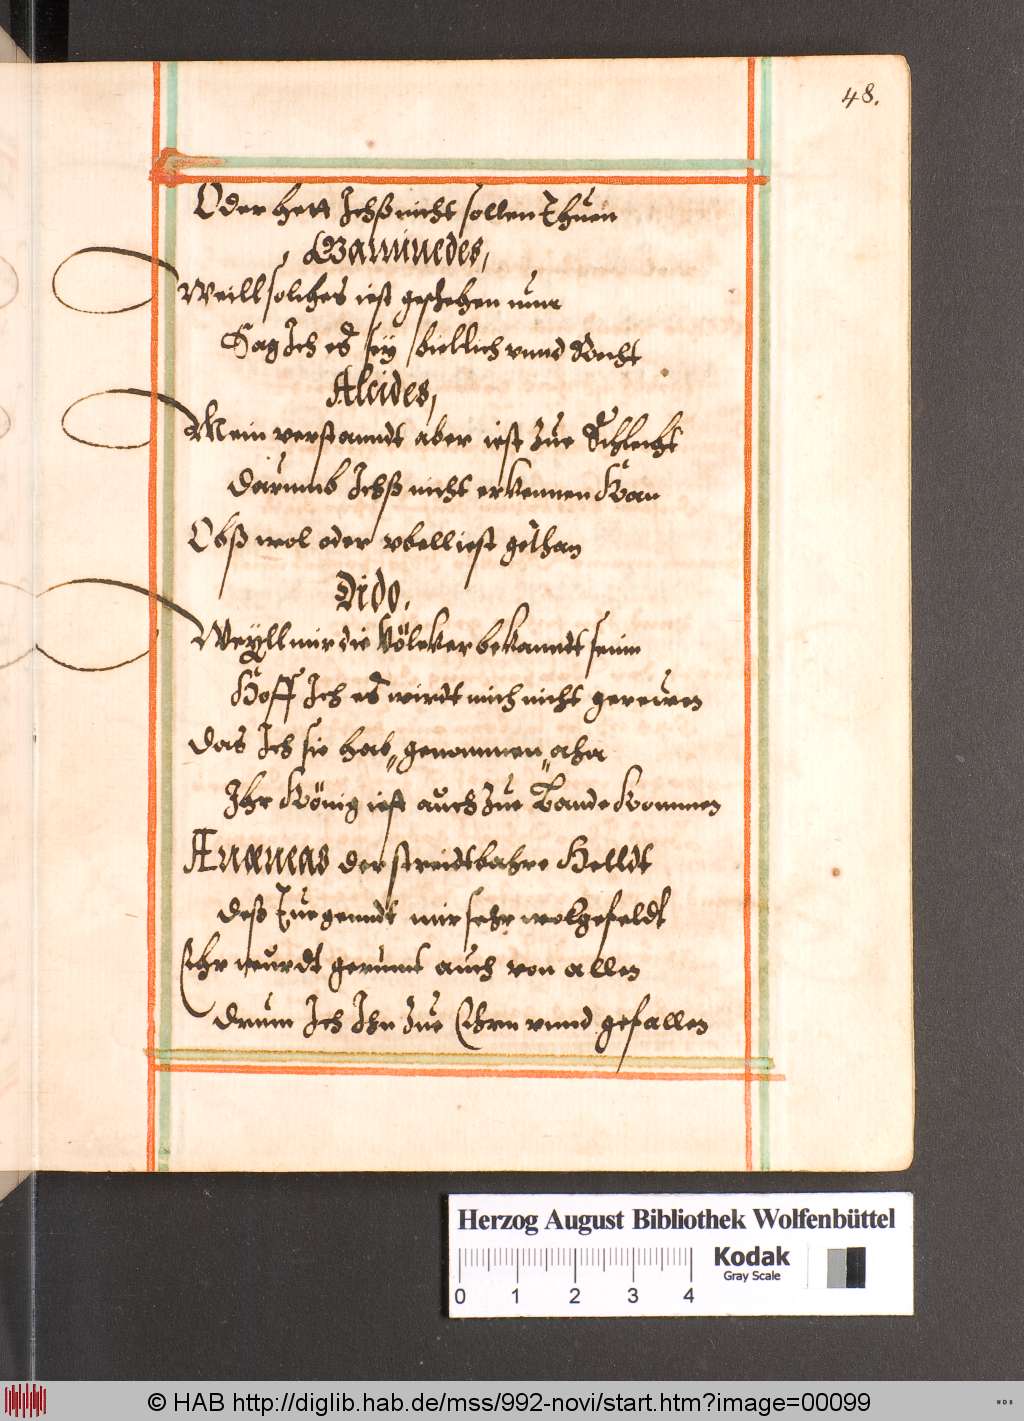 48.
Oder hett Ichß nicht sollen Thuen
Ganimedes,
Weill solches iest geschehen nuhn
Sag Ich es sey billich vnnd Recht
Alcides,
Mein verstanndt aber iest zue Schlecht
Darumb Ichß nicht erkennen Kan
Obß wol oder vbell iest gethan
Dido.
Weyll mir die Völcker bekanndt seinn
Hoff Ich es wirdt mich nicht gereuen
Das Ich sie hab genommen ahn
Ihr König iest auch zue Lande Kommen
Ænæas der streidtbahre Helldt
Deß Tuegendt mir sehr wolgefeldt
Ehr wurdt gerümt auch von allen
Drum Ich Ihn zue Ehrn vnnd gefallen
Herzog August Bibliothek Wolfenbüttel
Kodak
Gray Scale
0 1 2 3 4
© HAB http://diglib.hab.de/mss/992-novi/start.htm?image=00099